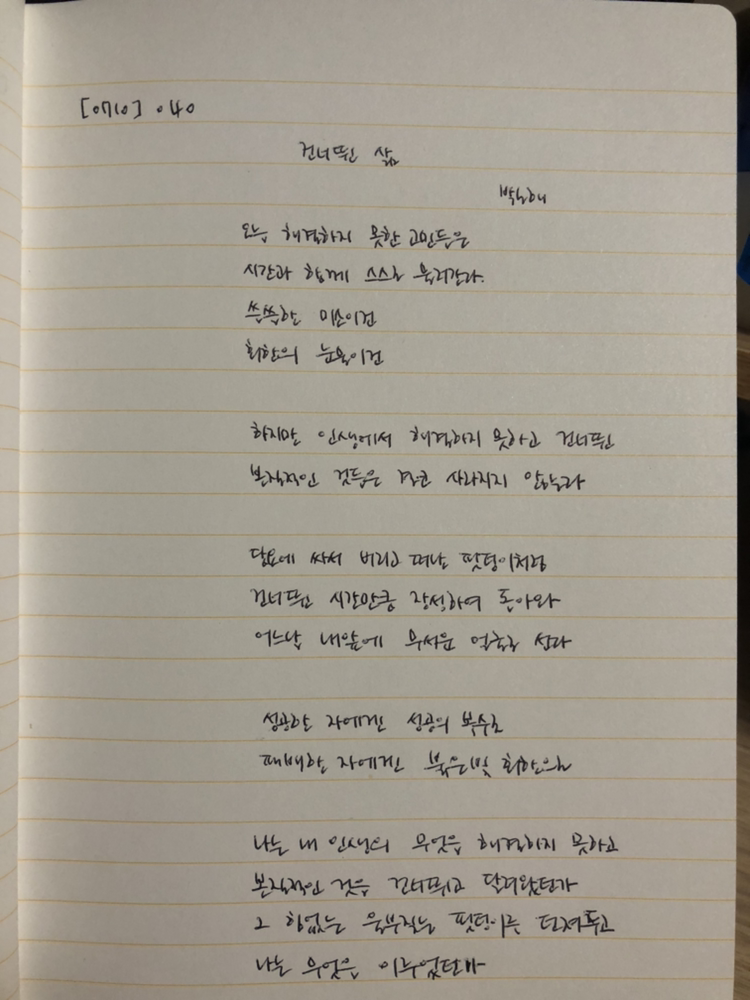 [0710] 040
건너뛴 삶
박노해
오늘 해결하지 못한 고민들은
시간과 함께 스스로 물러간다.
쓸쓸한 미소이건
회한의 눈물이건
하지만 인생에서 해결하지 못하고 건너뛴
본질적인 것들은 결코 사라지지 않는다
담요에 싸서 버리고 떠난 핏덩이처럼
건너뛴 시간만큼 장성하여 돌아와
어느날 내앞에 무서운 얼굴로 선다
성공한 자에겐 성공의 복수로
패배한 자에겐 붉은빛 회한으로
나는 내 인생의 무엇을 해결하지 못하고
본질적인 것을 건너뛰고 달려왔던가
그 힘없는 울부짖는 핏덩이를 던져두고
나는 무엇을 이루었던가